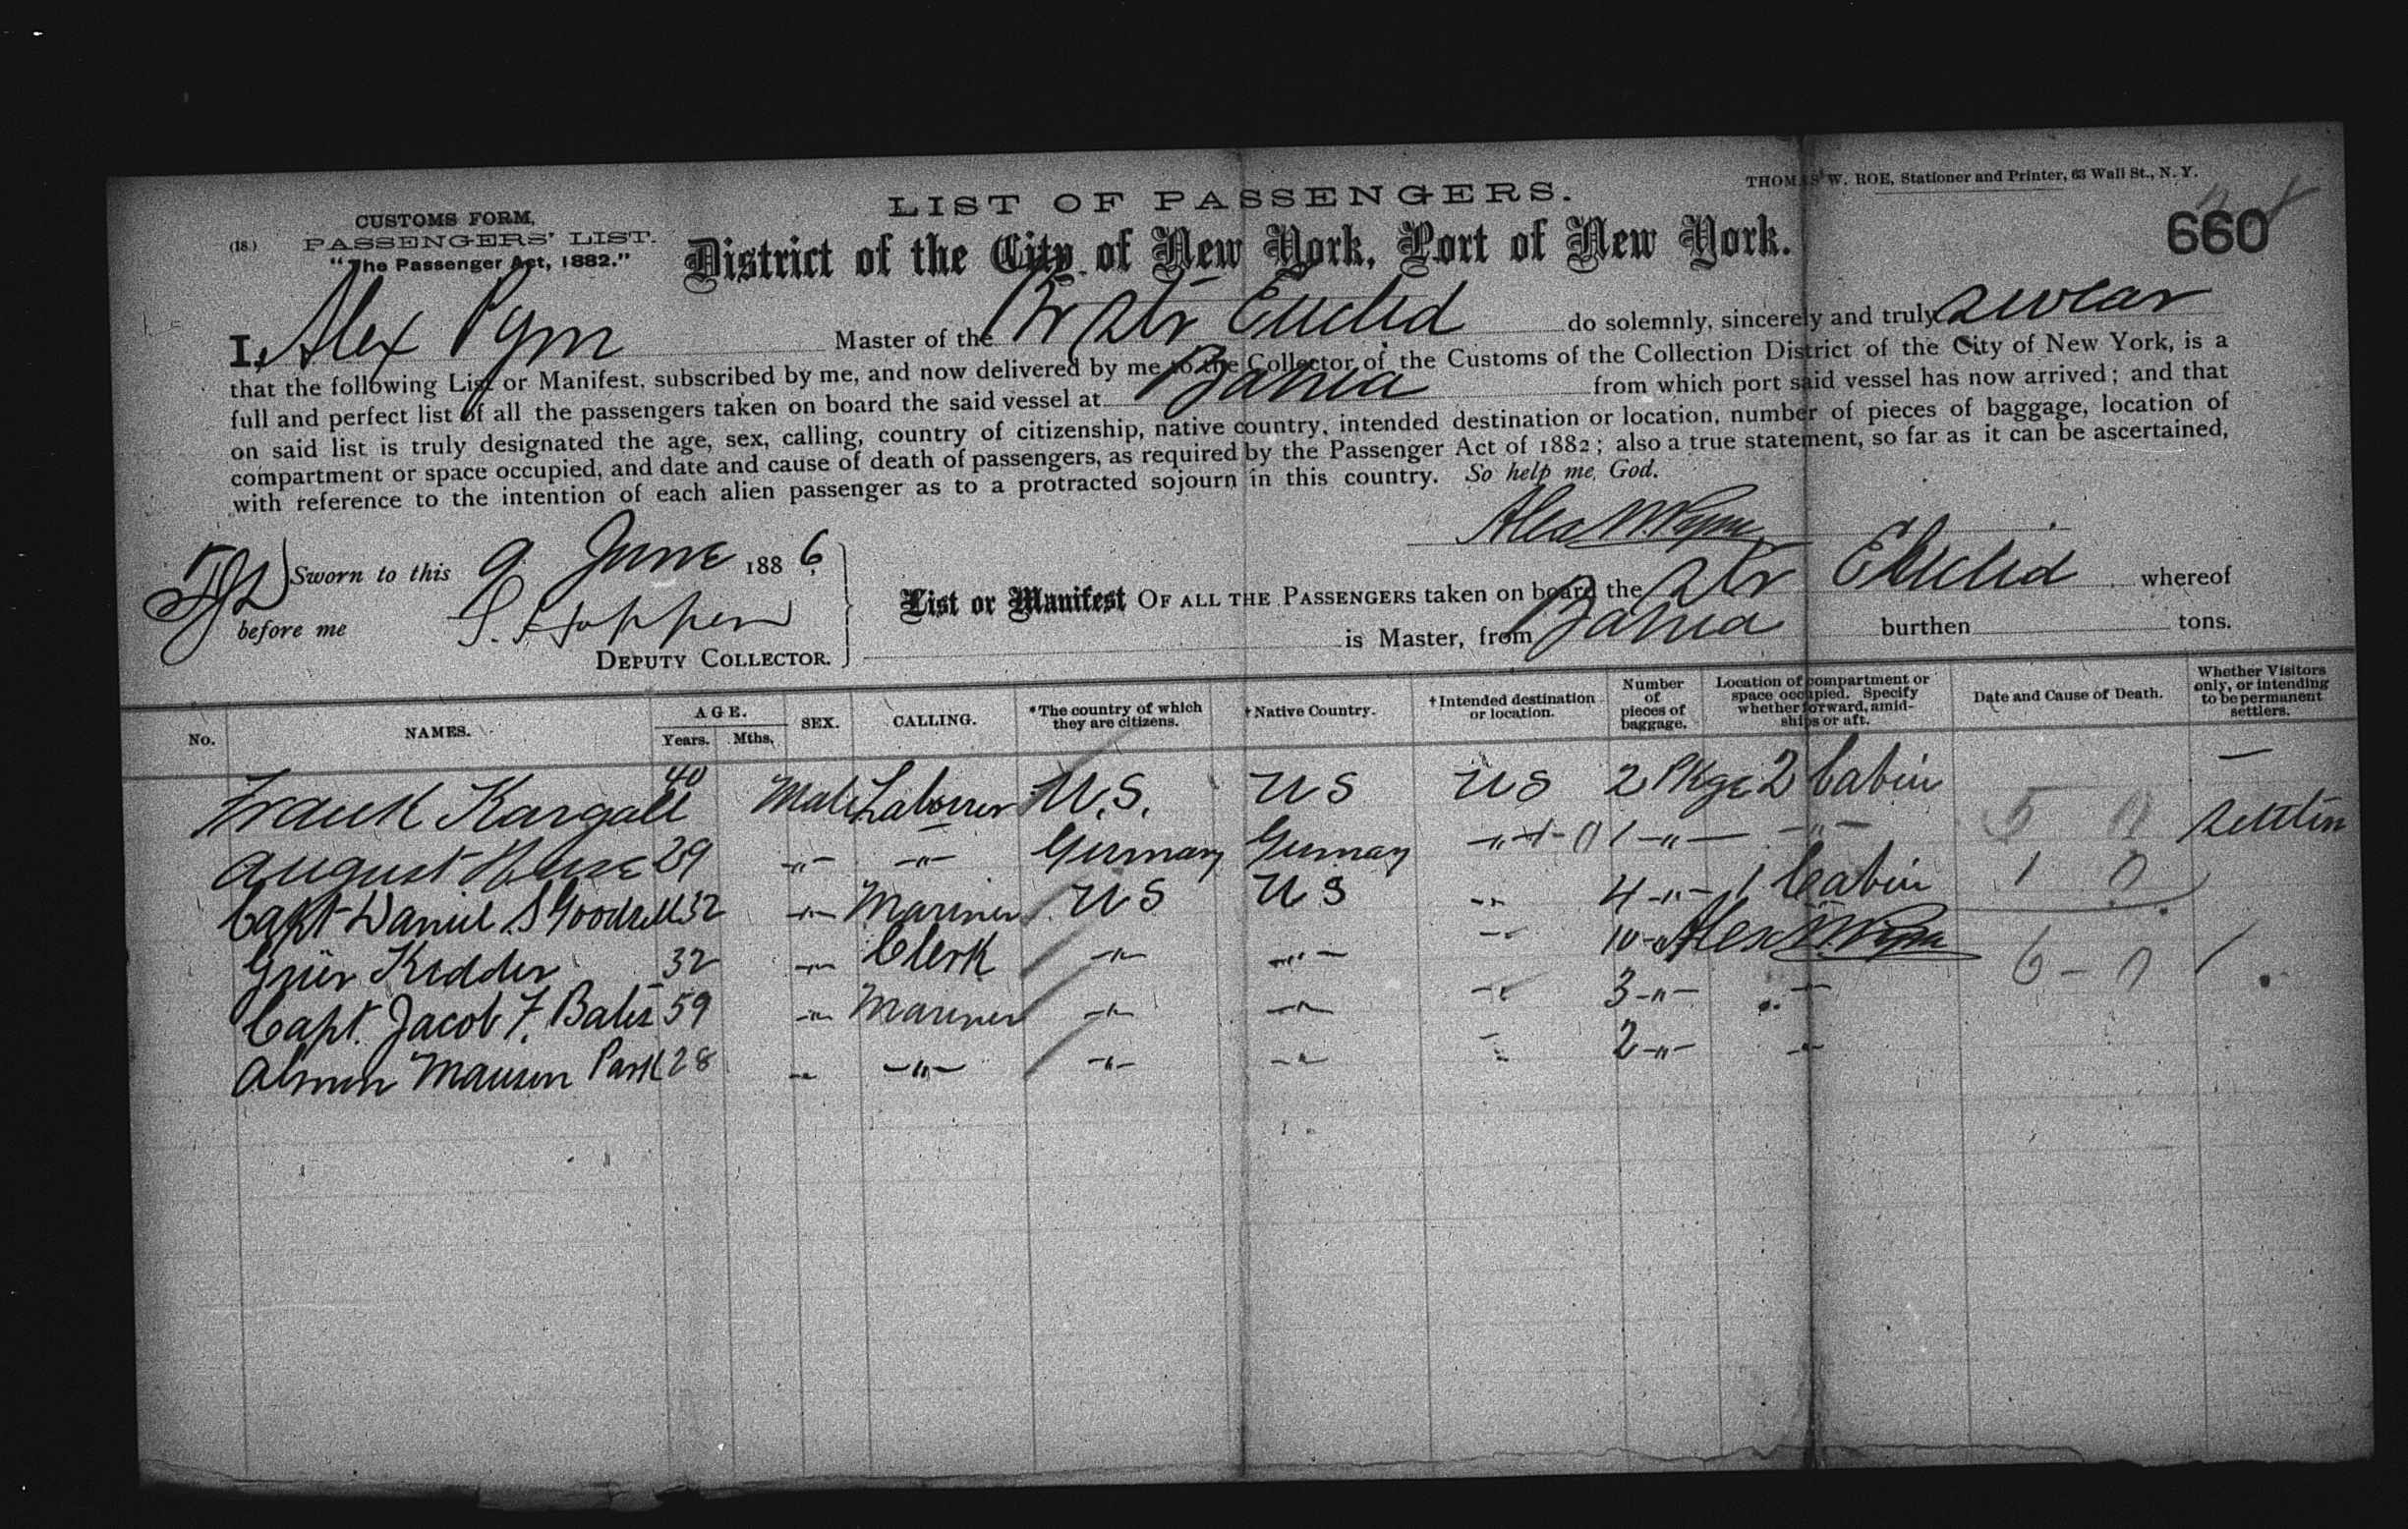 THOMAS W. ROE, Stationer and Printer, 63 Wall St., N. Y.
LIST OF PASSENGERS.
660
(18.) CUSTOMS FORM,
PASSENGERS' LIST.
"The Passenger Act, 1882."
District of the City of New York, Port of New York.
I, Alex Pym Master of the Br Str Euclid do solemnly, sincerely and truly swear
that the following List or Manifest, subscribed by me, and now delivered by me to the Collector of the Customs of the Collection District of the City of New York, is a
full and perfect list of all the passengers taken on board the said vessel at Bahia from which port said vessel has now arrived; and that
on said list is truly designated the age, sex, calling, country of citizenship, native country, intended destination or location, number of pieces of baggage, location of
compartment or space occupied, and date and cause of death of passengers, as required by the Passenger Act of 1882; also a true statement, so far as it can be ascertained,
with reference to the intention of each alien passenger as to a protracted sojourn in this country. So help me God.
Alex M. Pym
Sworn to this 9 June 1886
before me S. Hopper
DEPUTY COLLECTOR.
List or Manifest OF ALL THE PASSENGERS taken on board the Str Euclid whereof
is Master, from Bahia burthen tons.
No. NAMES. AGE. Years. Mths. SEX. CALLING. *The country of which they are citizens. †Native Country. †Intended destination or location. Number of pieces of baggage. Location of compartment or space occupied. Specify whether forward, amidships or aft. Date and Cause of Death. Whether Visitors only, or intending to be permanent settlers.
Frank Kargall 40 Male Labourer U.S. U S U S 2 Pkge 2 Cabin —
August 29 -"- -"- Germany Germany -"- 1 -"- -"- 5 0
Capt Daniel S Goodsell 32 -"- Mariner U S U S -"- 4 -"- 1 Cabin 1 0
Grier Kidder 32 -"- Clerk -"- -"- -"- 10 -"- Alex M. Pym 6 - 0
Capt. Jacob F. Bates 59 -"- Mariner -"- -"- -"- 3 -"- -"-
Almon Park 28 -"- -"- -"- -"- -"- 2 -"- -"-